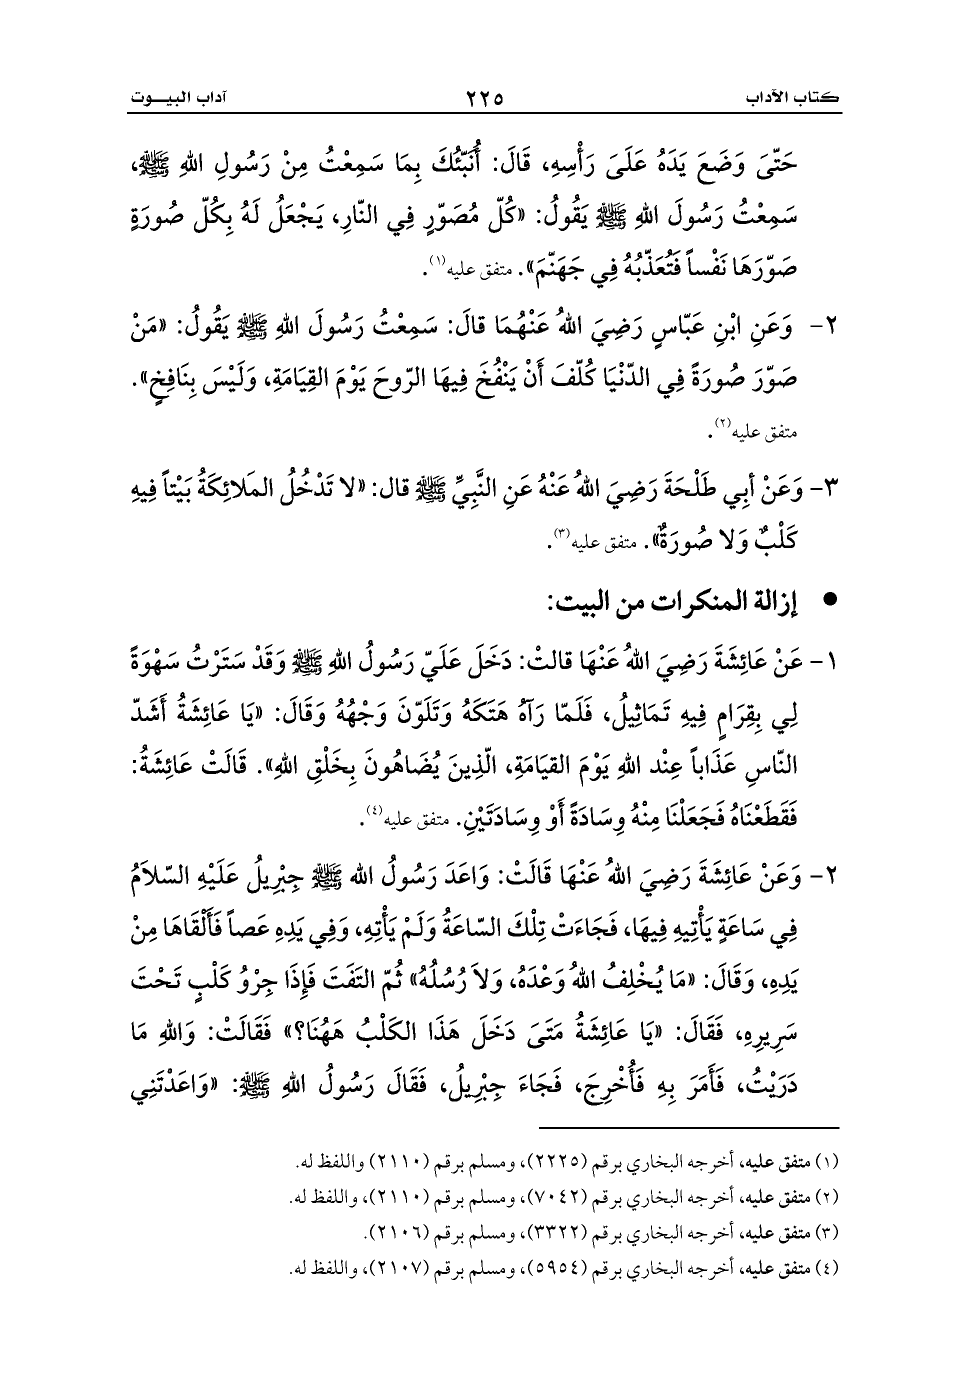 كتاب الآداب ٢٢٥ آداب البيـــوت
حَتَّىَ وَضَعَ يَدَهُ عَلَىَ رَأْسِهِ، قَالَ: أُنَبّئُكَ بِمَا سَمِعْتُ مِنْ رَسُولِ اللهِ ﷺ،
سَمِعْتُ رَسُولَ اللهِ ﷺ يَقُولُ: «كُلّ مُصَوّرٍ فِي النّارِ، يَجْعَلُ لَهُ بِكُلّ صُورَةٍ
صَوّرَهَا نَفْساً فَتُعَذّبُهُ فِي جَهَنّمَ». متفق عليه(١).
٢- وَعَنِ ابْنِ عَبّاسٍ رَضِيَ اللهُ عَنْهُمَا قالَ: سَمِعْتُ رَسُولَ اللهِ ﷺ يَقُولُ: «مَنْ
صَوّرَ صُورَةً فِي الدّنْيَا كُلّفَ أَنْ يَنْفُخَ فِيهَا الرّوحَ يَوْمَ القِيَامَةِ، وَلَيْسَ بِنَافِخٍ».
متفق عليه(٢).
٣- وَعَنْ أبِي طَلْحَةَ رَضِيَ اللهُ عَنْهُ عَنِ النَّبِيِّ ﷺ قال: «لا تَدْخُلُ المَلائِكَةُ بَيْتاً فِيهِ
كَلْبٌ وَلا صُورَةٌ». متفق عليه(٣).
● إزالة المنكرات من البيت:
١- عَنْ عَائِشَةَ رَضِيَ اللهُ عَنْهَا قالتْ: دَخَلَ عَلَيّ رَسُولُ اللهِ ﷺ وَقَدْ سَتَرْتُ سَهْوَةً
لِي بِقِرَامٍ فِيهِ تَمَاثِيلُ، فَلَمّا رَآهُ هَتَكَهُ وَتَلَوّنَ وَجْهُهُ وَقَالَ: «يَا عَائِشَةُ أَشَدّ
النّاسِ عَذَاباً عِنْد اللهِ يَوْمَ القيَامَةِ، الّذِينَ يُضَاهُونَ بِخَلْقِ اللهِ». قَالَتْ عَائِشَةُ:
فَقَطَعْنَاهُ فَجَعَلْنَا مِنْهُ وِسَادَةً أَوْ وِسَادَتَيْنِ. متفق عليه(٤).
٢- وَعَنْ عَائِشَةَ رَضِيَ اللهُ عَنْهَا قَالَتْ: وَاعَدَ رَسُولُ الله ﷺ جِبْرِيلُ عَلَيْهِ السّلاَمُ
فِي سَاعَةٍ يَأْتِيهِ فِيهَا، فَجَاءَتْ تِلْكَ السّاعَةُ وَلَمْ يَأْتِهِ، وَفِي يَدِهِ عَصاً فَأَلْقَاهَا مِنْ
يَدِهِ، وَقَالَ: «مَا يُخْلِفُ اللهُ وَعْدَهُ، وَلاَ رُسُلُهُ» ثُمّ التَفَتَ فَإِذَا جِرْوُ كَلْبٍ تَحْتَ
سَرِيرِهِ، فَقَالَ: «يَا عَائِشَةُ مَتَىَ دَخَلَ هَذَا الكَلْبُ هَهُنَا؟» فَقَالَتْ: وَاللهِ مَا
دَرَيْتُ، فَأَمَرَ بِهِ فَأُخْرِجَ، فَجَاءَ جِبْرِيلُ، فَقَالَ رَسُولُ اللهِ ﷺ: «وَاعَدْتَنِي
(١) متفق عليه، أخرجه البخاري برقم (٢٢٢٥)، ومسلم برقم (٢١١٠) واللفظ له.
(٢) متفق عليه، أخرجه البخاري برقم (٧٠٤٢)، ومسلم برقم (٢١١٠)، واللفظ له.
(٣) متفق عليه، أخرجه البخاري برقم (٣٣٢٢)، ومسلم برقم (٢١٠٦).
(٤) متفق عليه، أخرجه البخاري برقم (٥٩٥٤)، ومسلم برقم (٢١٠٧)، واللفظ له.